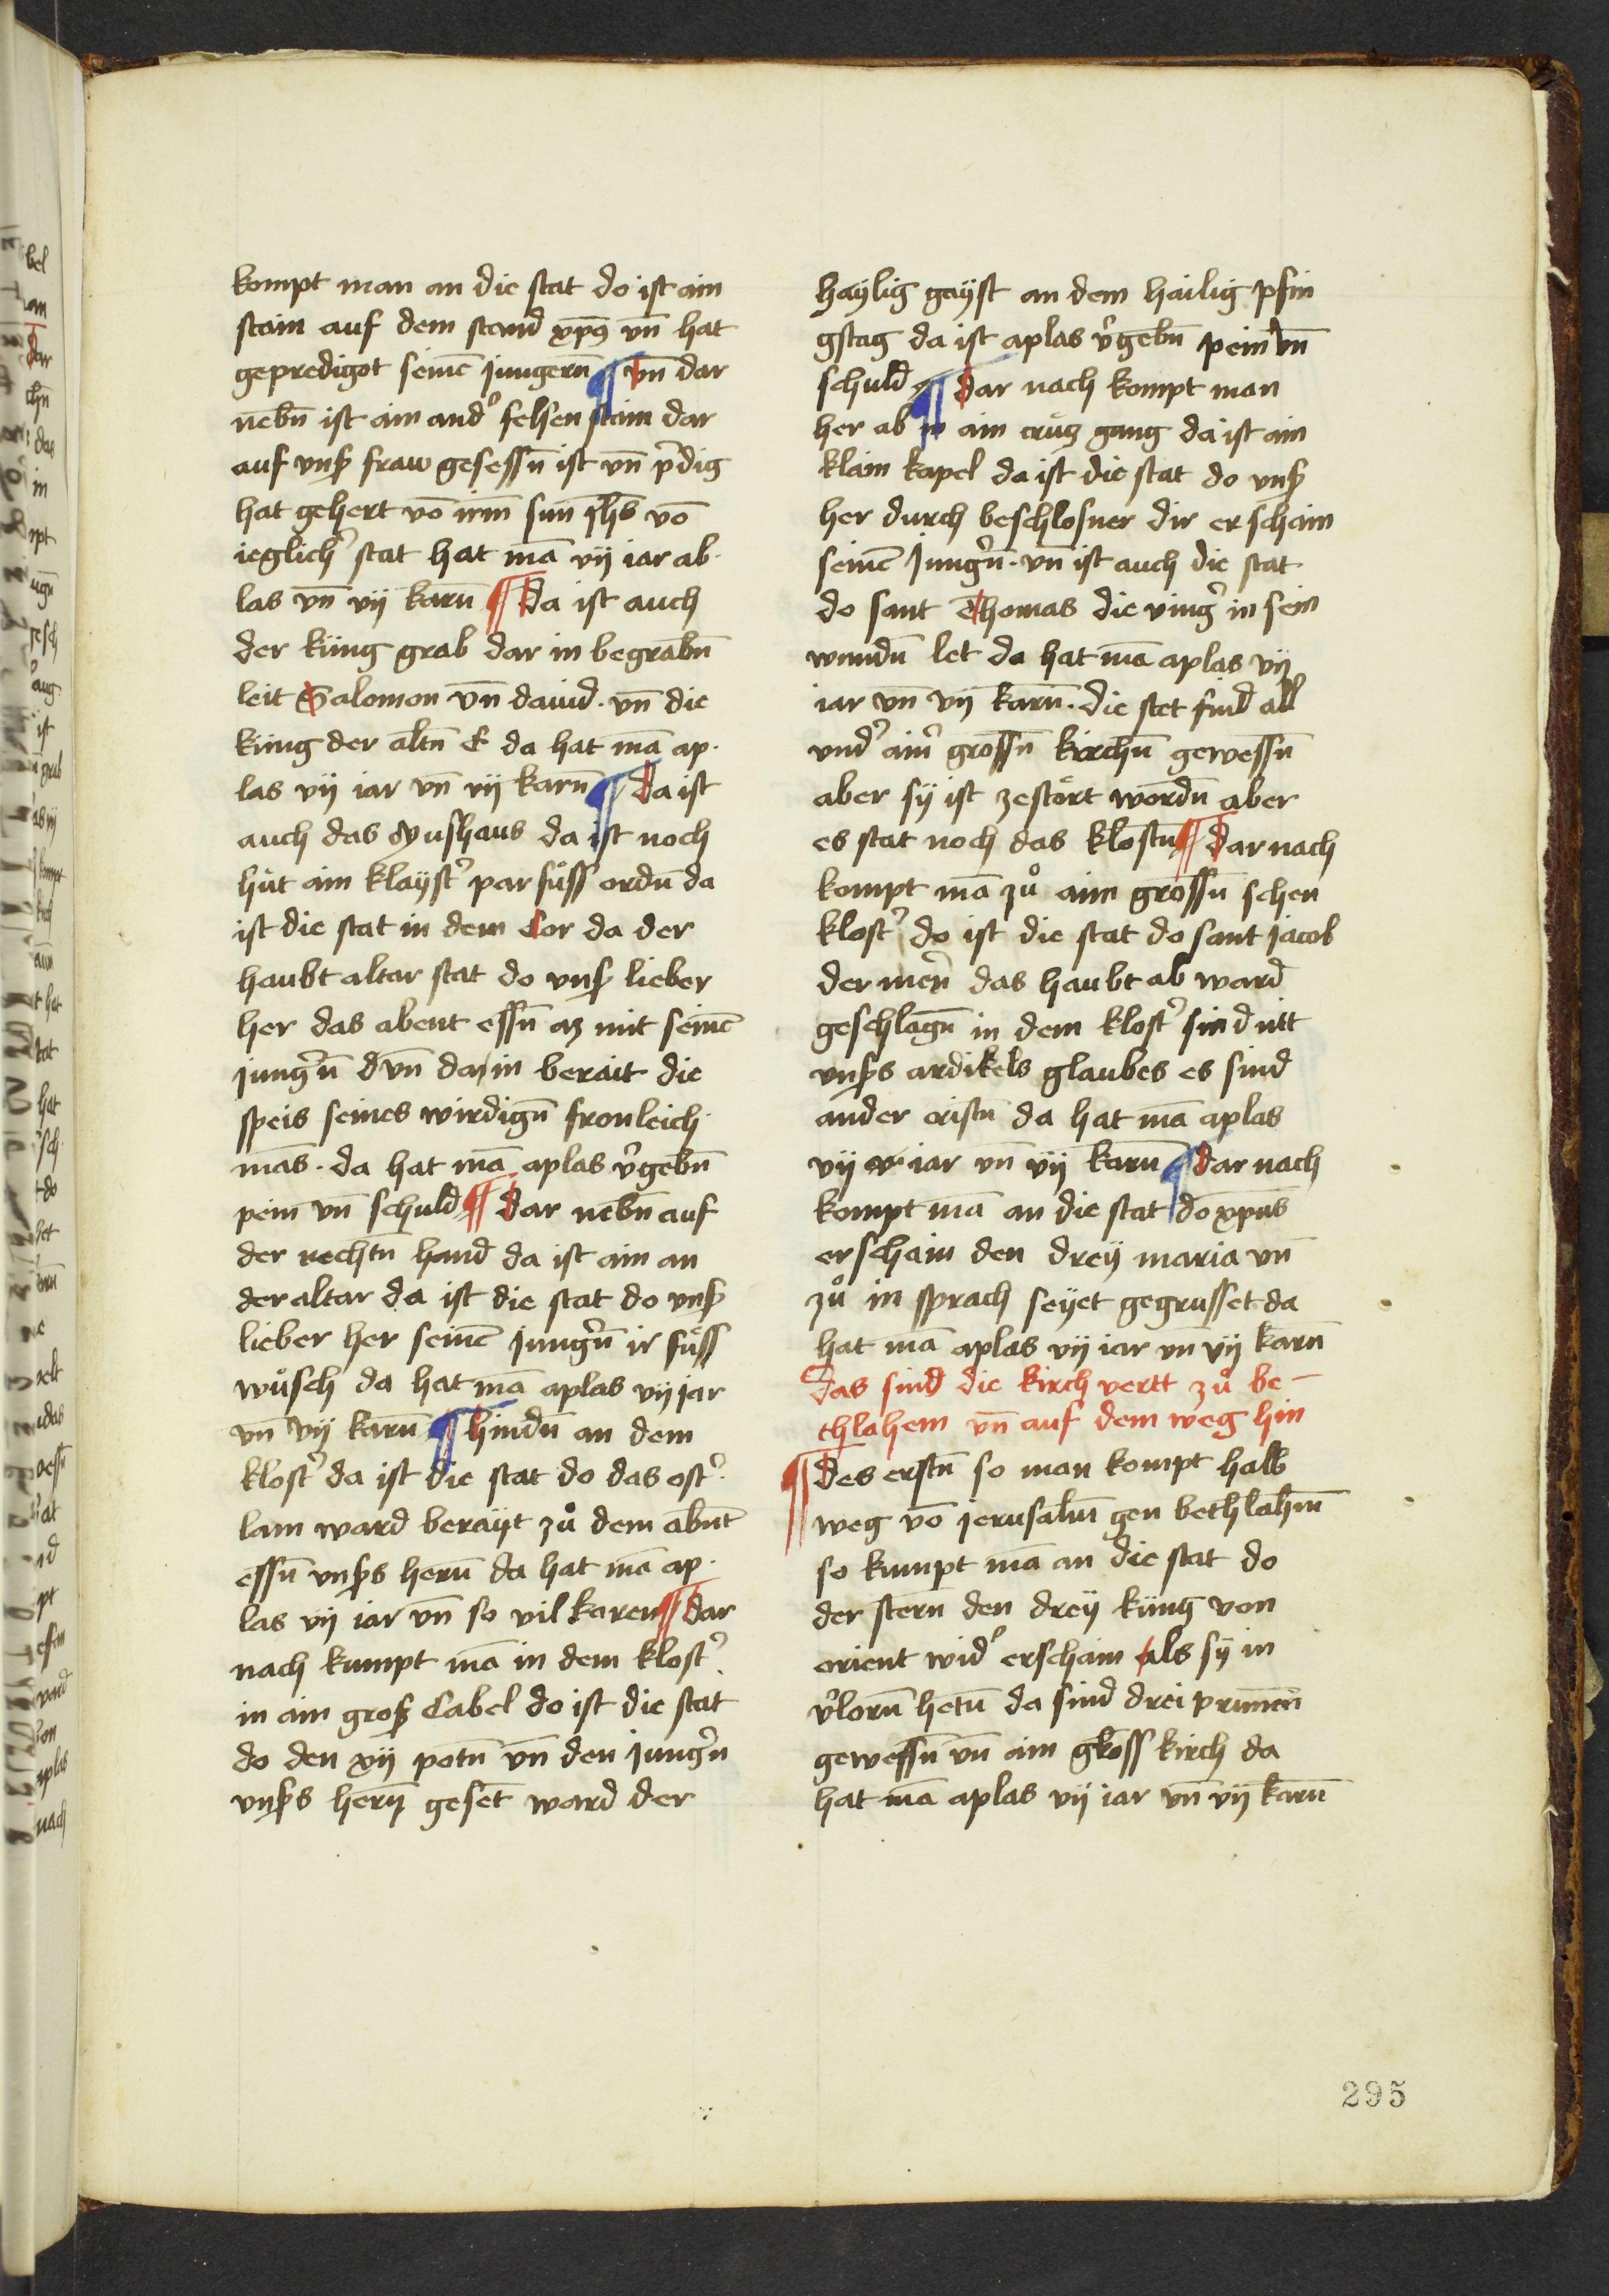 kompt man an die stat do ist ain
stain auf dem stand xp̄s vn̄ hat
gepredigot seinē jungern̄ ¶ vn̄ dar
nebn̄ ist ain and᾽ felsen stain dar
auf vnß fraw gesessn̄ ist vn̄ p᾽dig
hat gehert vō irm̄ sun̄ jhs̄ vō
ieglich᾽ stat hat mā vij iar ab-
las vn̄ vij karn̄ ¶ da ist auch
der küng grab dar in begrabn̄
leit Salomon vn̄ dauid · vn̄ die
küng der altn̄ E da hat mā ap-
las vij iar vn̄ vij karn̄ ¶ Da ist
auch das Syushaus da ist noch
hüt ain klayst᾽ par füss ordn̄ da
ist die stat in dem Cor da der
haubt altar stat do vnß lieber
her das abent essn̄ az mit seinē
jung᾽n̄ vn̄ da in berait die
speis seines wirdign̄ fronleich-
mās · da hat mā aplas v᾽gebn̄
pein vn̄ schuld ¶ dar nebn̄ auf
der rechtn̄ hand da ist ain an
der altar da ist die stat do vnß
lieber her seinē jung᾽n̄ ir füss
wůsch da hat mā aplas vij jar
vn̄ vij karn̄ ¶ hindn̄ an dem
klost᾽ da ist die stat do das ost᾽
lam ward berayt zů dem abn̄t
essn̄ vnßs hern̄ da hat mā ap-
las vij iar vn̄ so vil karen ¶ dar
nach kumpt mā in dem klost᾽
in ain groß Cabel do ist die stat
do den xij potn̄ vn̄ den jung᾽n
vnßs hern̄ geset̄ ward der
haylig gayst an dem hailig pfin
gstag da ist aplas v᾽gebn̄ pein vn̄
schuld ¶ dar nach kompt man
her ab in ain crüz gang da ist ain
klain kapel da ist die stat do vnß
her durch beschlosner dir erschain
seinē jung᾽n · vn̄ ist auch die stat
do sant Thomas die ving᾽ in sein
wundn̄ let da hat mā aplas vij
iar vn̄ vij karn̄ · die stet sind all
vnd᾽ ain᾽ grossn̄ kirchn̄ gewessn̄
aber sy ist zestört wordn̄ aber
es stat noch das klostn̄ ¶ dar nach
kompt mā zů aim grossn̄ schen
klost᾽ do ist die stat do sant jacob
der mer᾽ das haubt ab ward
geschlagn̄ in dem klost᾽ sind nit
vnßs ardikels glaubes es sind
ander cristn̄ da hat mā aplas
vij iar vn̄ vij karn̄ ¶ dar nach
kompt mā an die stat do xp̄us
erschain den drey maria vn̄
zů in sprach seyet gegrusset da
hat mā aplas vij iar vn̄ vij karn̄
Das sind die kirch vertt zů be-
thlahem vn̄ auf dem weg hin
¶ des erstn̄ so man kompt halb
weg vō jerusalm̄ gen bethlahm̄
so kumpt mā an die stat do
der stern den drey küng von
orient wid᾽ erschain als sy in
v᾽lorn̄ hetn̄ da sind drei prunen̄
gewessn̄ vn̄ ain gross kirch da
hat mā aplas vij iar vn̄ vij karn̄
295